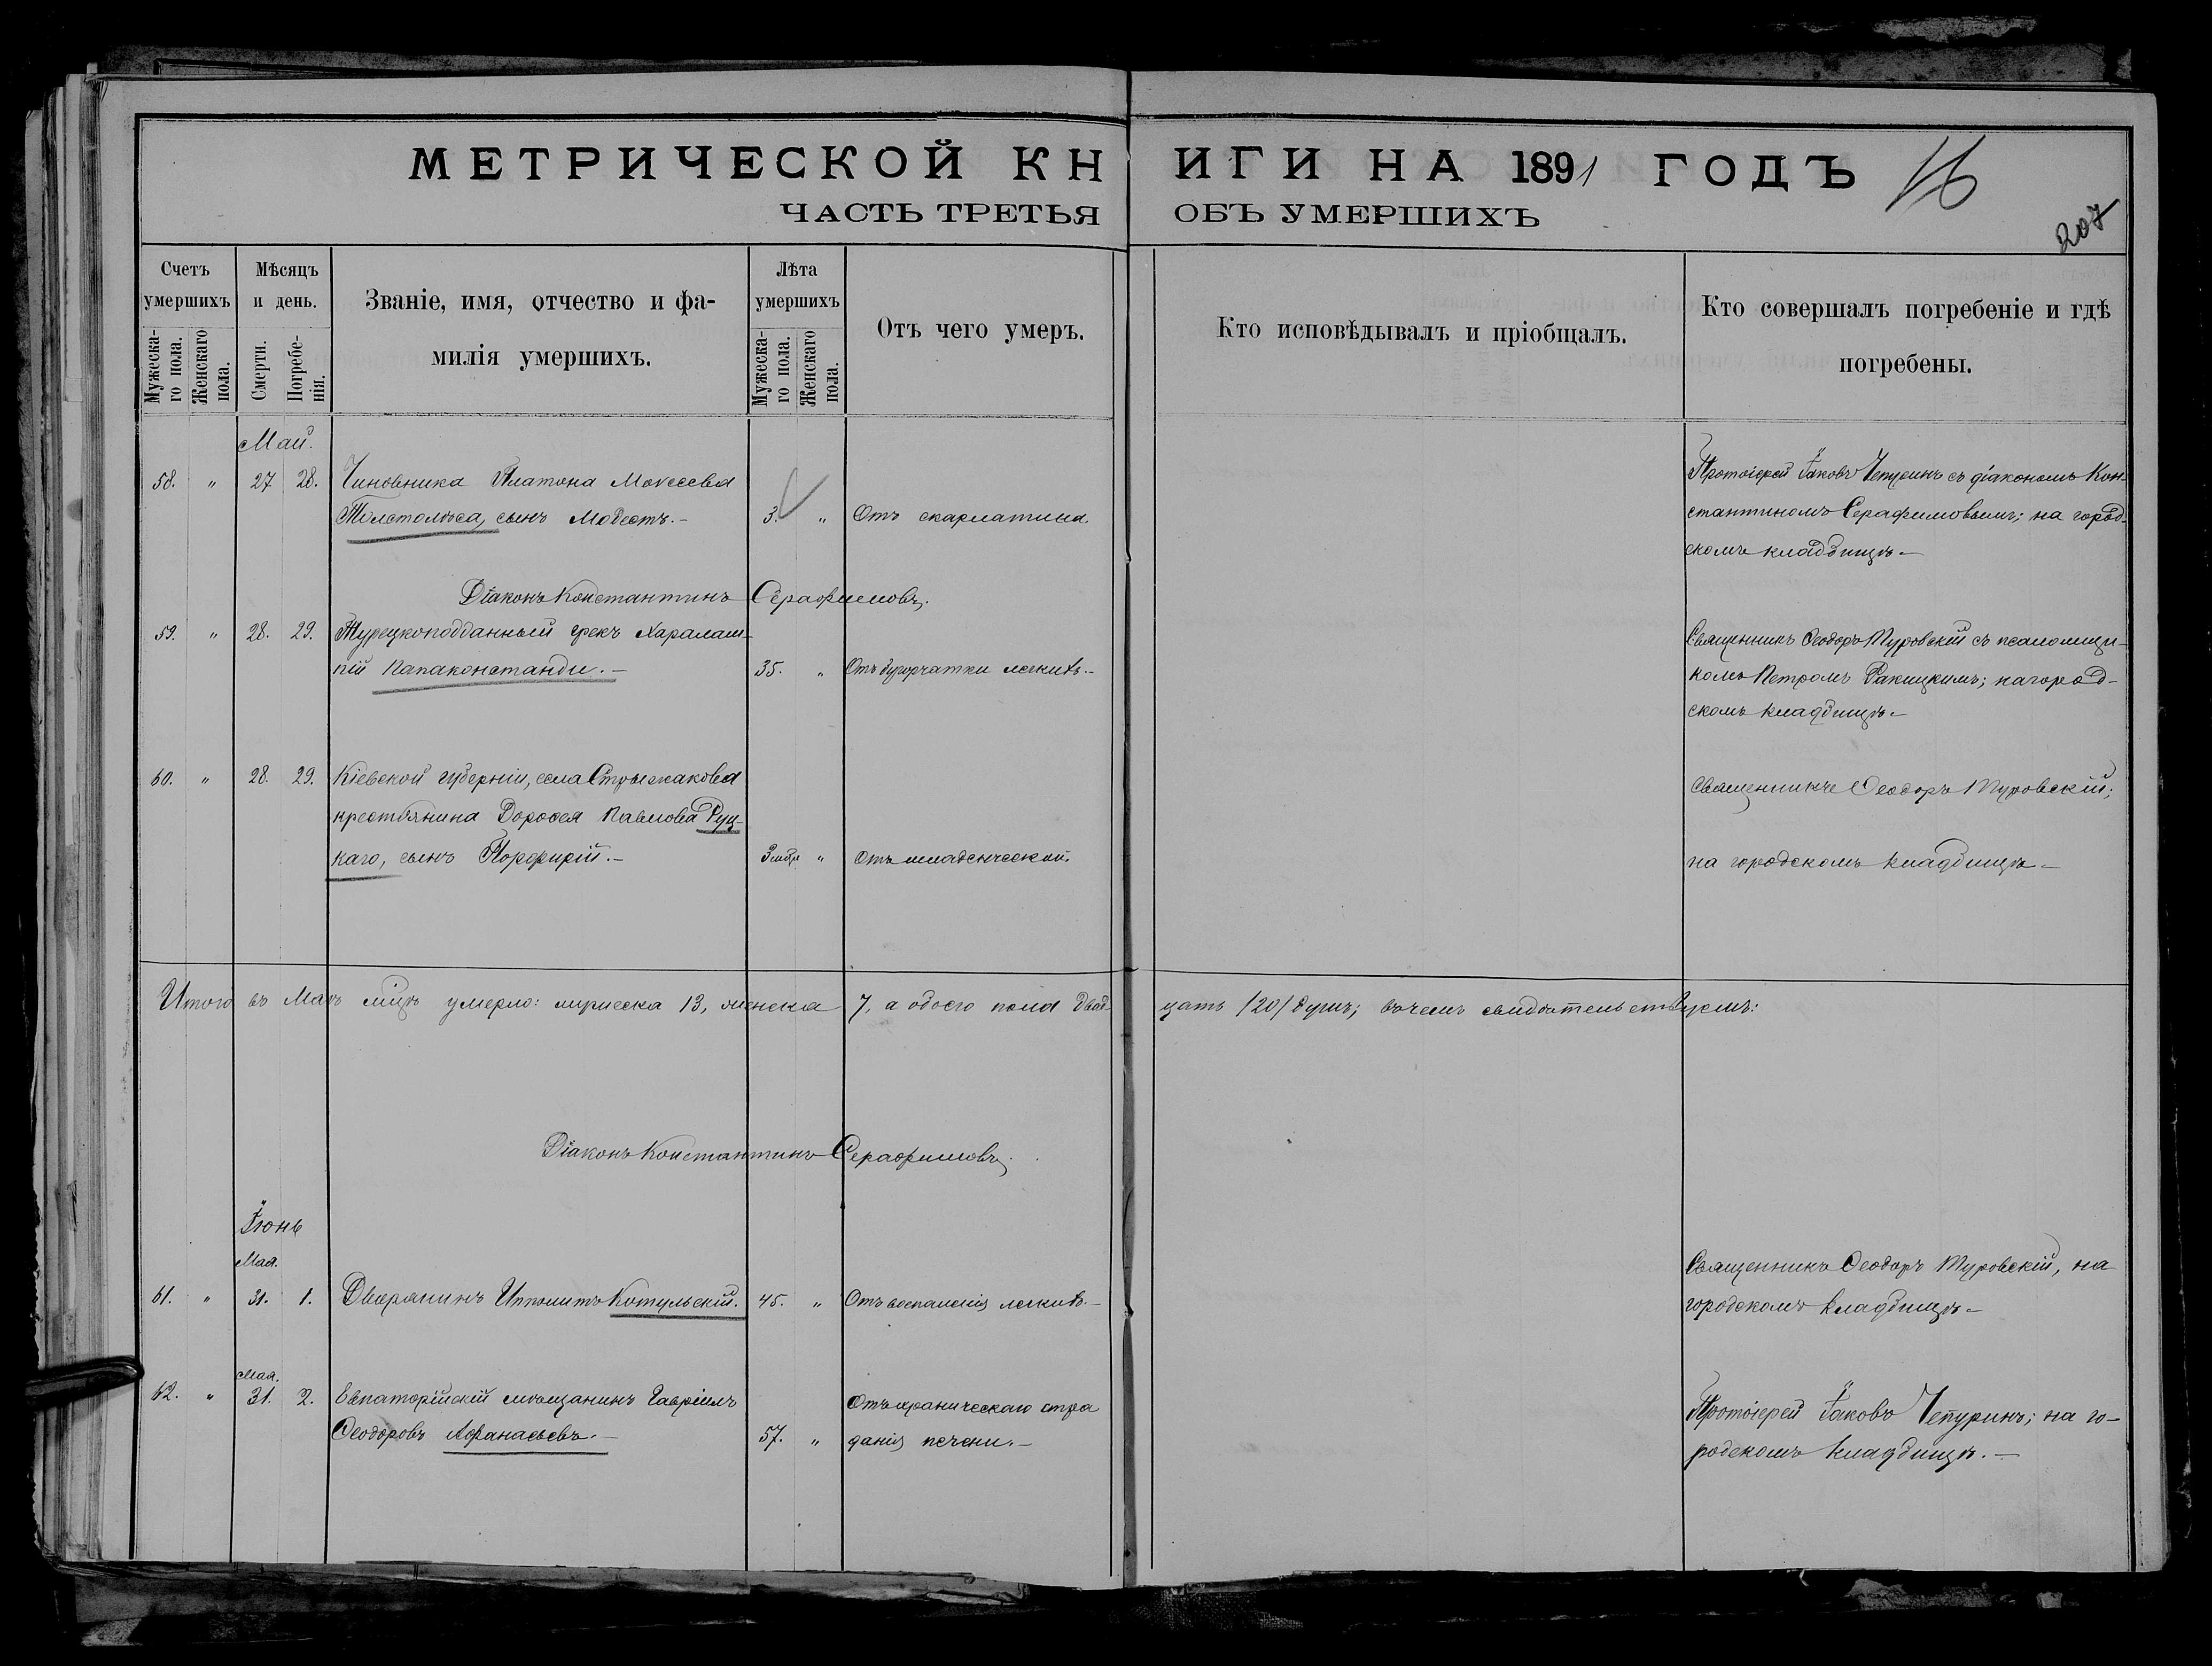 МЕТРИЧЕСКОЙ КНИГИ НА 1891 ГОДЪ
16
ЧАСТЬ ТРЕТЬЯ ОБЪ УМЕРШИХЪ
207
Счетъ умершихъ
Мужеска-го пола.
Женскаго пола.
Мѣсяцъ и день.
Смерти.
Погребе-нія.
Званіе, имя, отчество и фа-
милія умершихъ.
Лѣта умершихъ
Мужеска-го пола.
Женскаго пола.
Отъ чего умеръ.
Кто исповѣдывалъ и пріобщалъ.
Кто совершалъ погребеніе и гдѣ
погребены.
Май.
58. " 27 28. Чиновника Платона Моисеева
Толстолѣса, сынъ Модестъ.- 3. " Отъ скарлатины.
Протоіерей Іаковъ Чепуринъ съ діакономъ Кон-
стантиномъ Серафимовымъ; на город-
скомъ кладбищѣ.-
Діаконъ Константинъ Серафимовъ.
59. " 28. 29. Турецкоподданный грекъ Харалам-
пій Папаконстанди.- 35. " Отъ бугорчатки легкихъ.-
Священникъ Ѳеодоръ Туровскій съ псаломщи-
комъ Петромъ Ракицкимъ; на город-
скомъ кладбищѣ.-
60. " 28. 29. Кіевской губерніи, села Стрыжакова
крестьянина Дороѳея Павлова Руц-
каго, сынъ Порфирій.- 3 мѣс. " Отъ младенческой.
Священникъ Ѳеодоръ Туровскій;
на городскомъ кладбищѣ.-
Итого въ Маѣ м-цѣ умерло: мужеска 13, женска 7, а обоего пола двад-цать /20/ душъ; въ чемъ свидѣтельствуемъ:
Діаконъ Константинъ Серафимовъ.
Іюнь
Мая.
61. " 31. 1. Дворянинъ Ипполитъ Котульскій. 45. " Отъ воспаленія легкихъ.-
Священникъ Ѳеодоръ Туровскій, на
городскомъ кладбищѣ.-
Мая.
62. " 31. 2. Евпаторійскій мѣщанинъ Гавріилъ
Ѳеодоровъ Аѳанасьевъ.- 57. " Отъ хроническаго стра
данія печени.-
Протоіерей Іаковъ Чепуринъ; на го-
родскомъ кладбищѣ.-